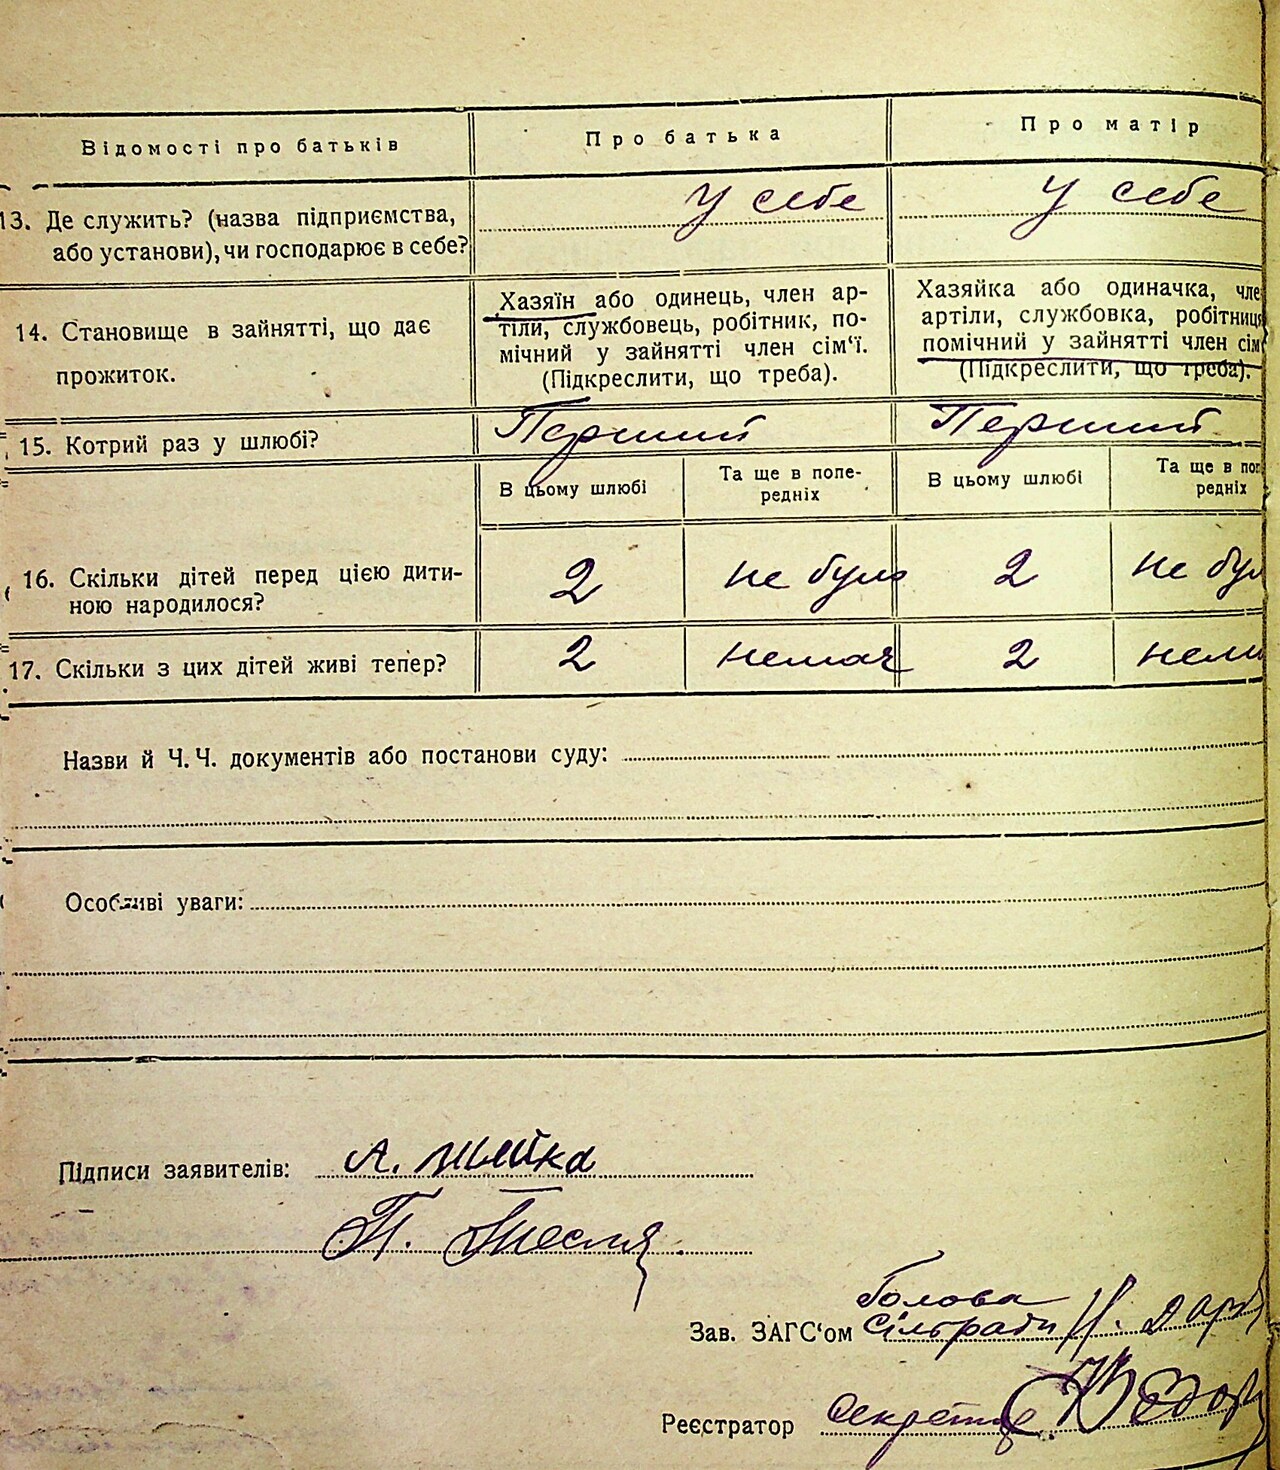 Відомості про батьків
Про батька
Про матір
13. Де служить? (назва підприємства,
або установи), чи господарює в себе?
У себе
У себе
14. Становище в зайнятті, що дає
прожиток.
Хазяїн або одинець, член ар-
тіли, службовець, робітник, по-
мічний у зайнятті член сім'ї.
(Підкреслити, що треба).
Хазяйка або одиначка, чле
артіли, службовка, робітниця
помічний у зайнятті член сім'
(Підкреслити, що треба).
15. Котрий раз у шлюбі?
Перший
Перший
В цьому шлюбі
Та ще в попе-
редніх
В цьому шлюбі
Та ще в поп
редніх
16. Скільки дітей перед цією дити-
ною народилося?
2
не було
2
не бул
17. Скільки з цих дітей живі тепер?
2
немає
2
нема
Назви й Ч. Ч. документів або постанови суду:
Особливі уваги:
Підписи заявителів:
А. Шийка
П. Тесля
Голова
Зав. ЗАГС'ом Сільради
Реєстратор Секретар